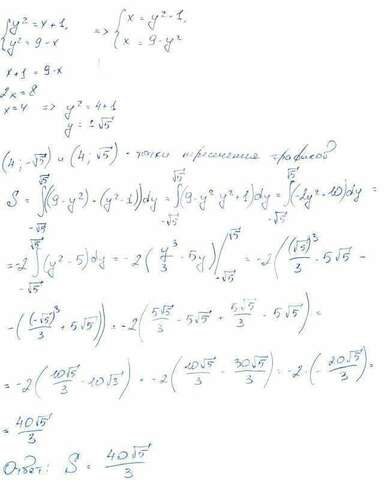 {y² = x+1, => {x = y² - 1,
{y² = 9-x {x = 9-y²
x+1 = 9-x
2x = 8
x=4 => y² = 4+1
y = ±√5
(4; -√5) и (4; √5) - точки пересечения графиков
S = ∫_{-√5}^{√5} ((9-y²) - (y²-1)) dy = ∫_{-√5}^{√5} (9-y²-y²+1) dy = ∫_{-√5}^{√5} (-2y²+10) dy =
= -2 ∫_{-√5}^{√5} (y²-5) dy = -2 (y³/3 - 5y) |_{-√5}^{√5} = -2 ((√5)³/3 - 5√5 -
- ((-√5)³/3 + 5√5)) = -2 (5√5/3 - 5√5 + 5√5/3 - 5√5) =
= -2 (10√5/3 - 10√5) = -2 (10√5/3 - 30√5/3) = -2·(-20√5/3) =
= 40√5/3
Ответ: S = 40√5/3